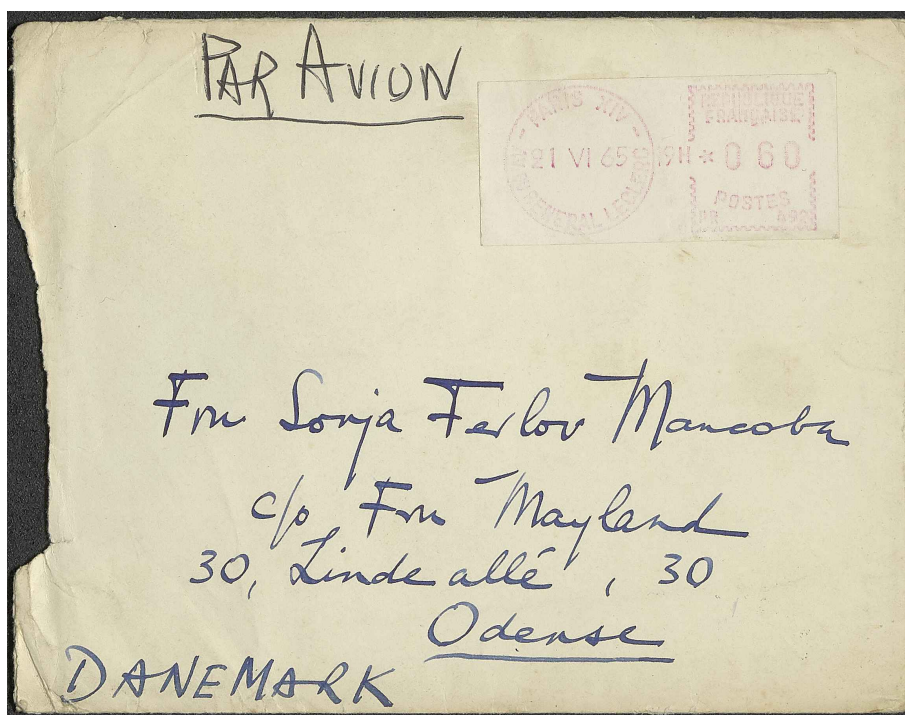 PAR AVION
PARIS XIV
21 VI 65 19H * 0 60
GENERAL LECLERC
REPUBLIQUE
FRANÇAISE
POSTES
Fru Sonja Ferlov Mancoba
c/o Fru Mayland
30, Linde allé, 30
Odense
DANEMARK